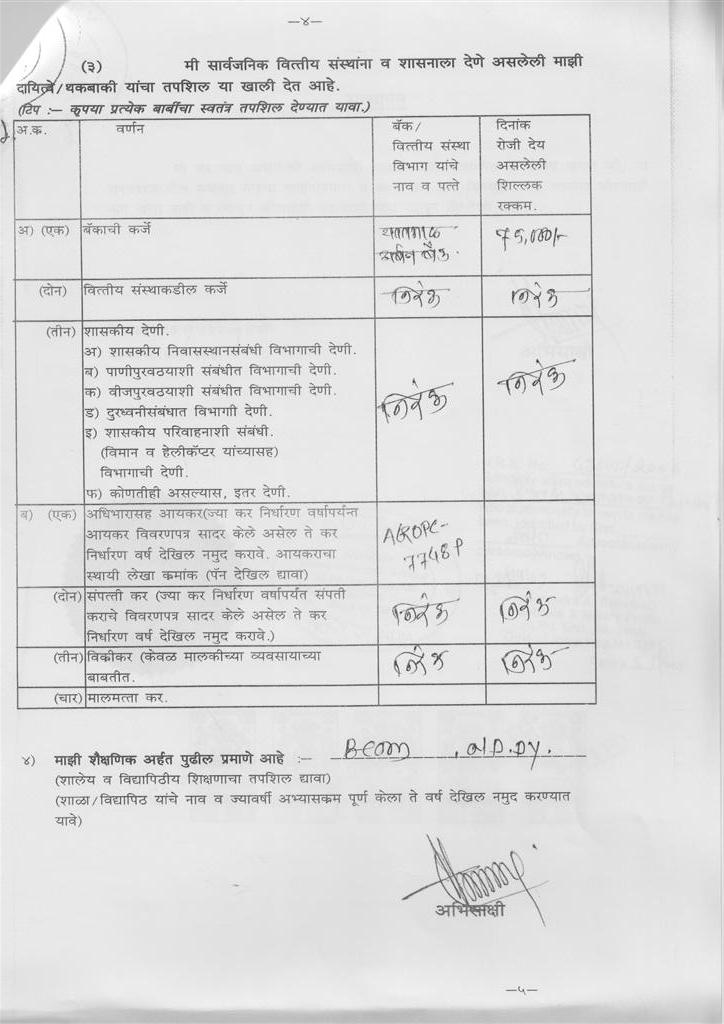 —४—
(३) मी सार्वजनिक वित्तीय संस्थांना व शासनाला देणे असलेली माझी
दायित्वे/थकबाकी यांचा तपशिल या खाली देत आहे.
(टिप :— कृपया प्रत्येक बाबींचा स्वतंत्र तपशिल देण्यात यावा.)
अ.क. वर्णन बॅक/ वित्तीय संस्था विभाग यांचे नाव व पत्ते दिनांक रोजी देय असलेली शिल्लक रक्कम.
अ) (एक) बॅकाची कर्जे यवतमाळ अर्बन बँक. ७५,०००/-
(दोन) वित्तीय संस्थाकडील कर्जे निरंक निरंक
(तीन) शासकीय देणी.
अ) शासकीय निवासस्थानसंबंधी विभागाची देणी.
ब) पाणीपुरवठयाशी संबंधीत विभागाची देणी.
क) वीजपुरवठयाशी संबंधीत विभागाची देणी. निरंक निरंक
ड) दुरध्वनीसंबंधात विभागी देणी.
इ) शासकीय परिवाहनाशी संबंधी.
(विमान व हेलीकॅप्टर यांच्यासह)
विभागाची देणी.
फ) कोणतीही असल्यास, इतर देणी.
ब) (एक) अधिभारासह आयकर(ज्या कर निर्धारण वर्षापर्यन्त
आयकर विवरणपत्र सादर केले असेल ते कर
निर्धारण वर्ष देखिल नमुद करावे. आयकराचा
स्थायी लेखा कमांक (पॅन देखिल द्यावा)
(दोन) संपत्ती कर (ज्या कर निर्धारण वर्षापर्यंत संपती
कराचे विवरणपत्र सादर केले असेल ते कर निरंक निरंक
निर्धारण वर्ष देखिल नमुद करावे.)
(तीन) विकीकर (केवळ मालकीच्या व्यवसायाच्या निरंक निरंक
बाबतीत.
(चार) मालमत्ता कर.
४) माझी शैक्षणिक अर्हत पुढील प्रमाणे आहे :— Bcom
(शालेय व विद्यापिठीय शिक्षणाचा तपशिल द्यावा)
(शाळा/विद्यापिठ यांचे नाव व ज्यावर्षी अभ्यासकम पूर्ण केला ते वर्ष देखिल नमुद करण्यात
यावे)
अभिसाक्षी
—५—